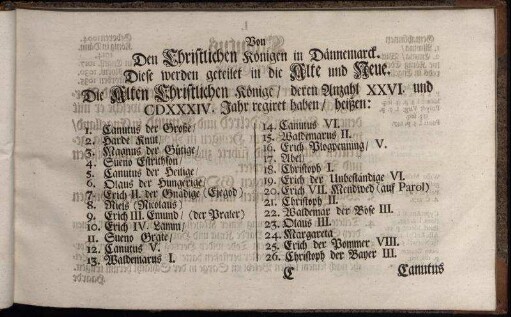 Von
Den Christlichen Königen in Dännemarck.
Diese werden geteilet in die Alte und Neue.
Die Alten Christlichen Könige/ deren Anzahl XXVI. und
CDXXXIV. Jahr regiret haben/ heißen:
1. Canutus der Große/
2. Harde Knut/
3. Magnus der Gütige/
4. Sueno Estrithson/
5. Canutus der Heilige/
6. Olaus der Hungerige/
7. Erich II. der Gnädige (Ejegod)
8. Niels (Nicolaus)
9. Erich III. Emund/ (der Prater)
10. Erich IV. Lamm/
11. Sueno Grate/
12. Canutus V.
13. Waldemarus I.
14. Canutus VI.
15. Waldemarus II.
16. Erich Plogpenning/ V.
17. Abel/
18. Christoph I.
19. Erich der Unbeständige VI.
20. Erich VII. Mendwed (auf Parol)
21. Christoph II.
22. Waldemar der Böse III.
23. Olaus III.
24. Margareta
25. Erich der Pommer VIII.
26. Christoph der Bayer III.
C Canutus